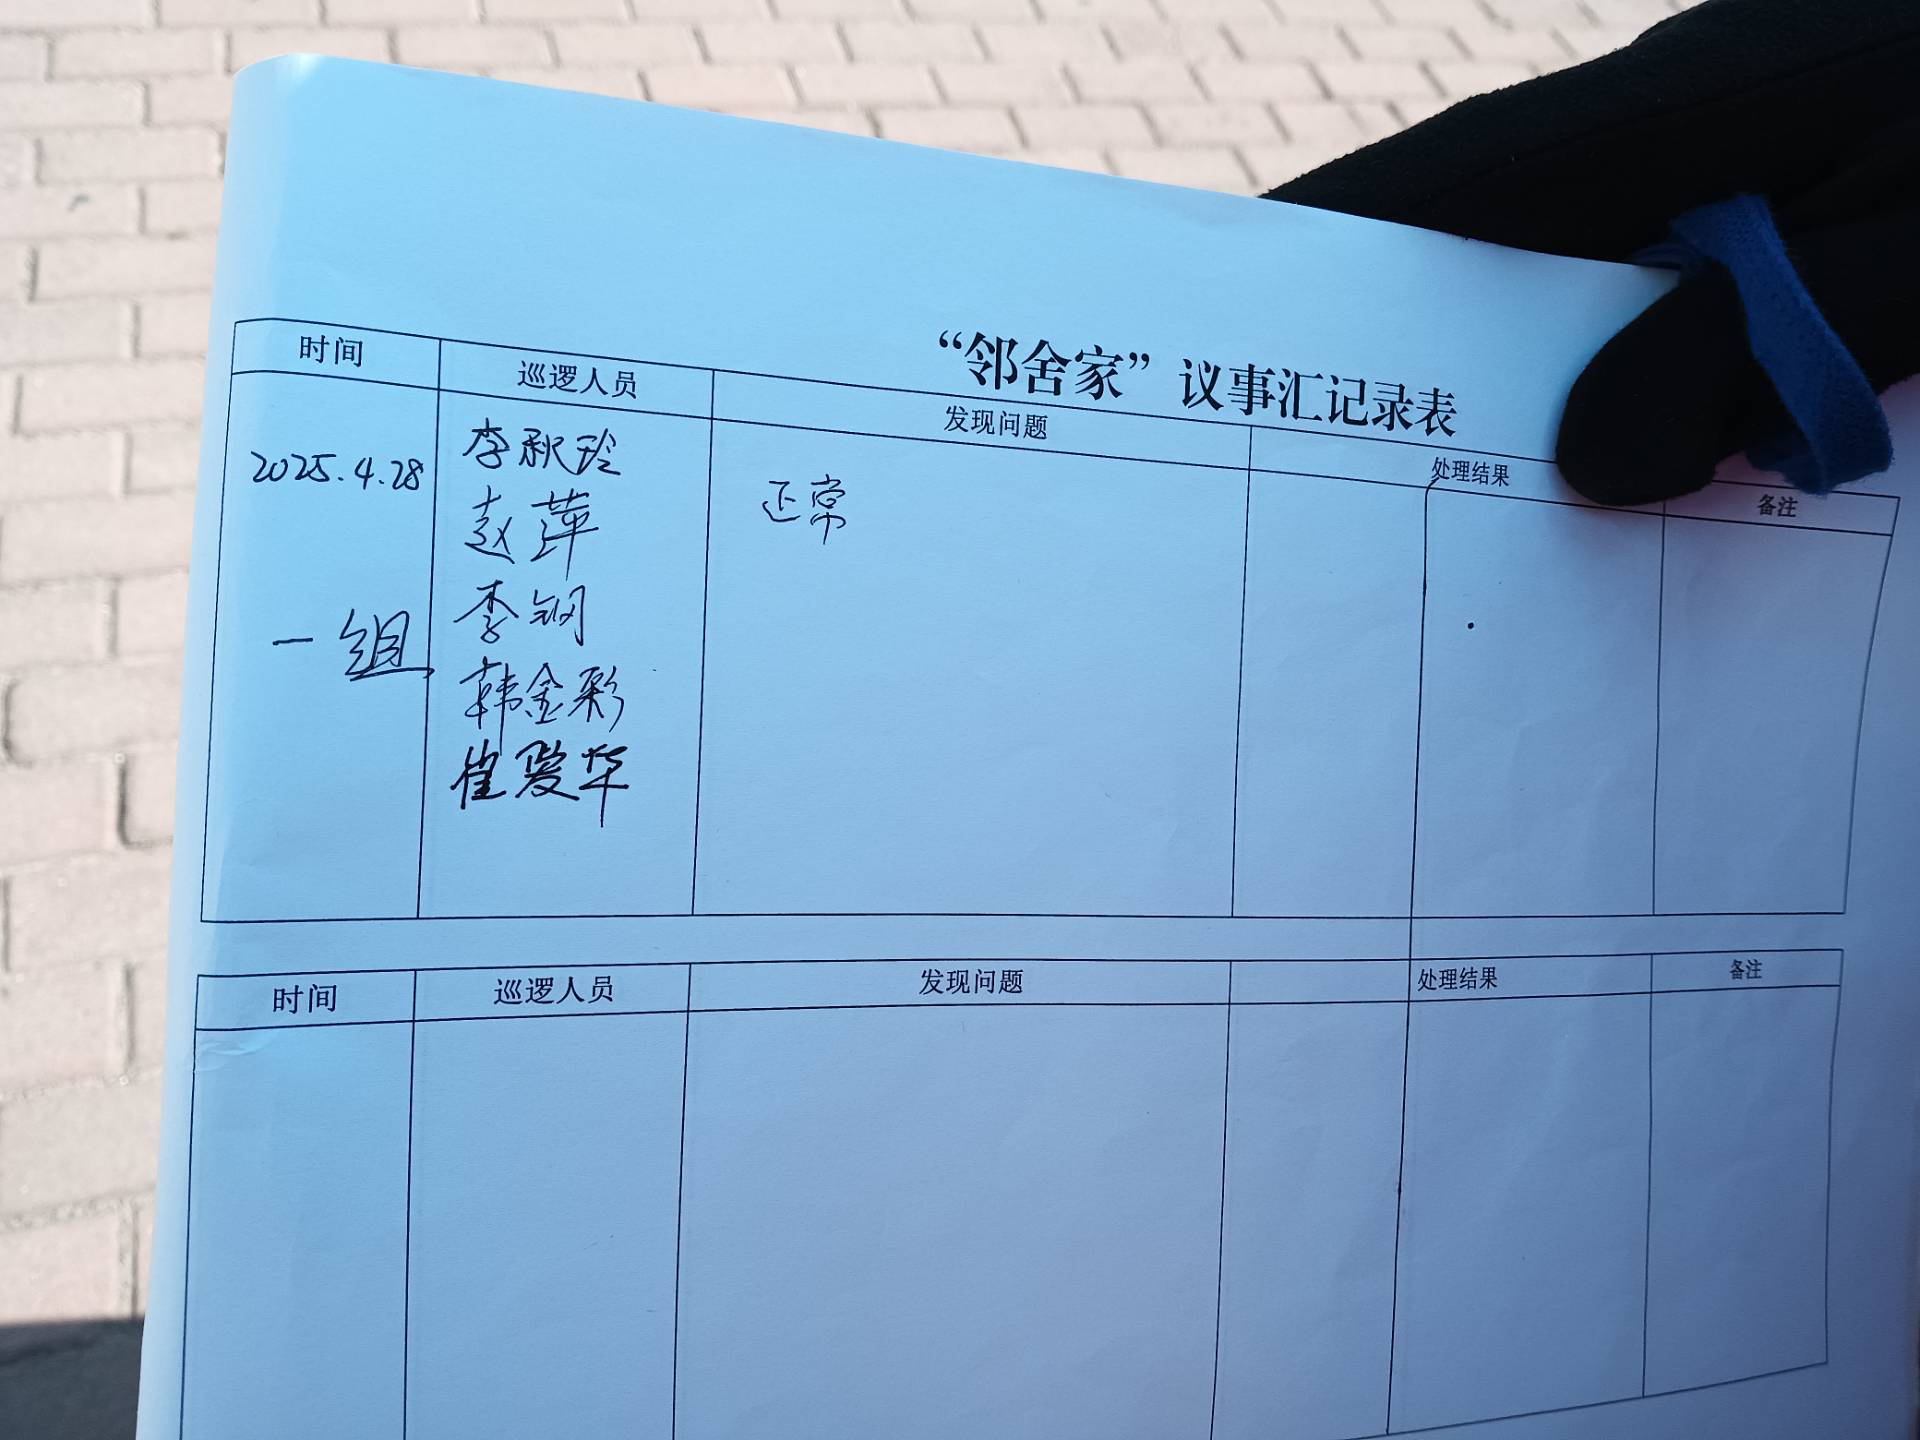 “邻舍家”议事汇记录表
时间 巡逻人员 发现问题 处理结果 备注
2025.4.28
一组
李秋玲
赵萍
李钢
韩金彩
崔爱华
正常
时间 巡逻人员 发现问题 处理结果 备注